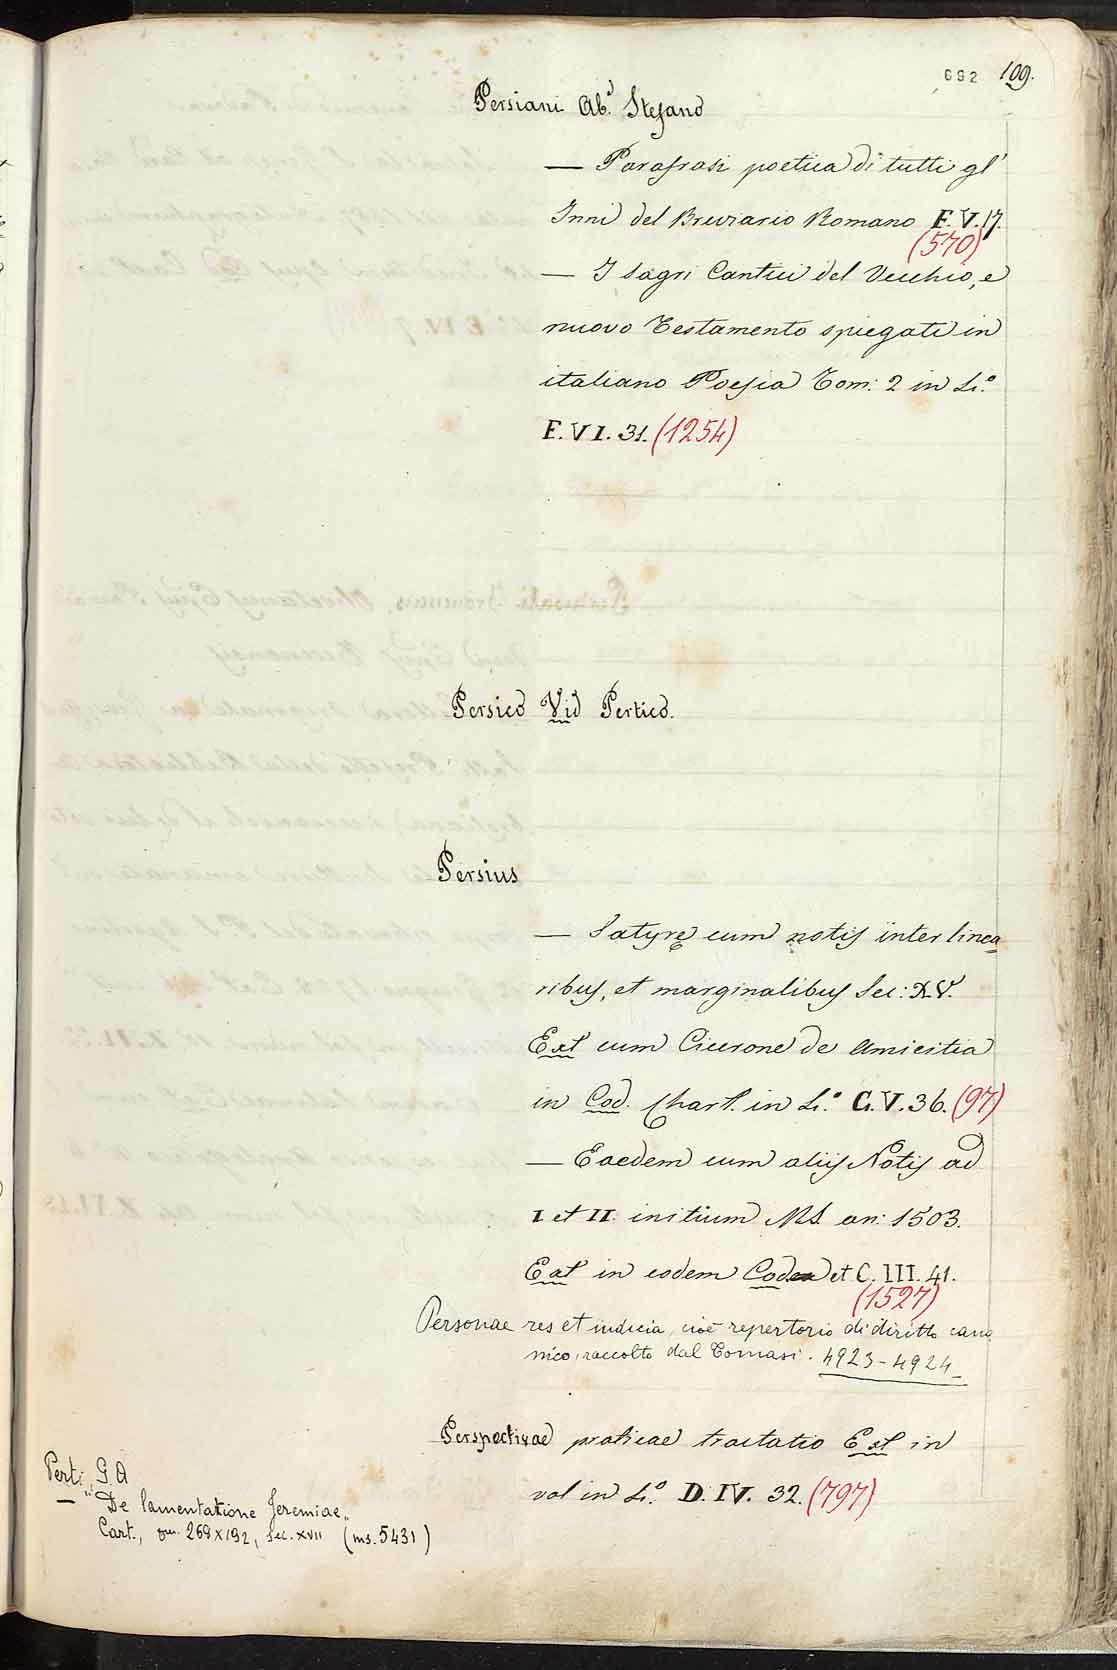 692 109.
Persiani Ab.e Stefano
— Parafrasi poetica di tutti gl'
Inni del Breviario Romano F. V. 17.
(570)
— I sagri Cantici del Vecchio, e
nuovo Testamento spiegati in
italiano Poesia Tom: 2 in 4.º
F. VI. 31. (1254)
Persico Vid Pertico.
Persius
— Satyrę cum notis interlinea
ribus, et marginalibus Sec: XV.
Ext cum Cicerone de Amicitia
in Cod. Chart. in 4.º C. V. 36. (97)
— Eaedem cum aliis Notis ad
I et II initium MS an: 1503.
Ext in eodem Codex et C. III. 41.
(1527)
Personae res et indicia, cioè repertorio di diritto cano
nico, raccolto dal Tomasi. 4923-4924
Perspectivae praticae tractatio Ext in
vol in 4.º D. IV. 32. (797)
Perti G. A
— "De lamentatione Jeremiae"
Cart., mm. 269x192, sec. XVII (ms. 5431)